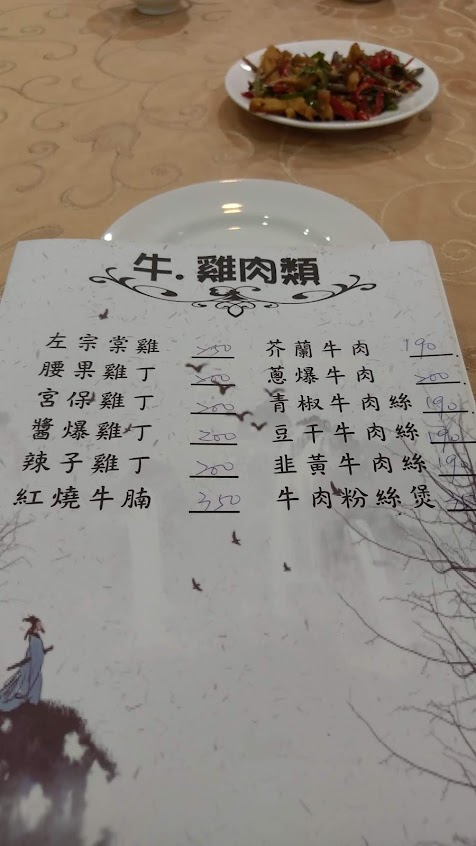 牛.雞肉類
左宗棠雞 250
腰果雞丁 200
宮保雞丁 200
醬爆雞丁 200
辣子雞丁 200
紅燒牛腩 350
芥蘭牛肉 190
蔥爆牛肉 200
青椒牛肉絲 190
豆干牛肉絲 190
韭黃牛肉絲 190
牛肉粉絲煲